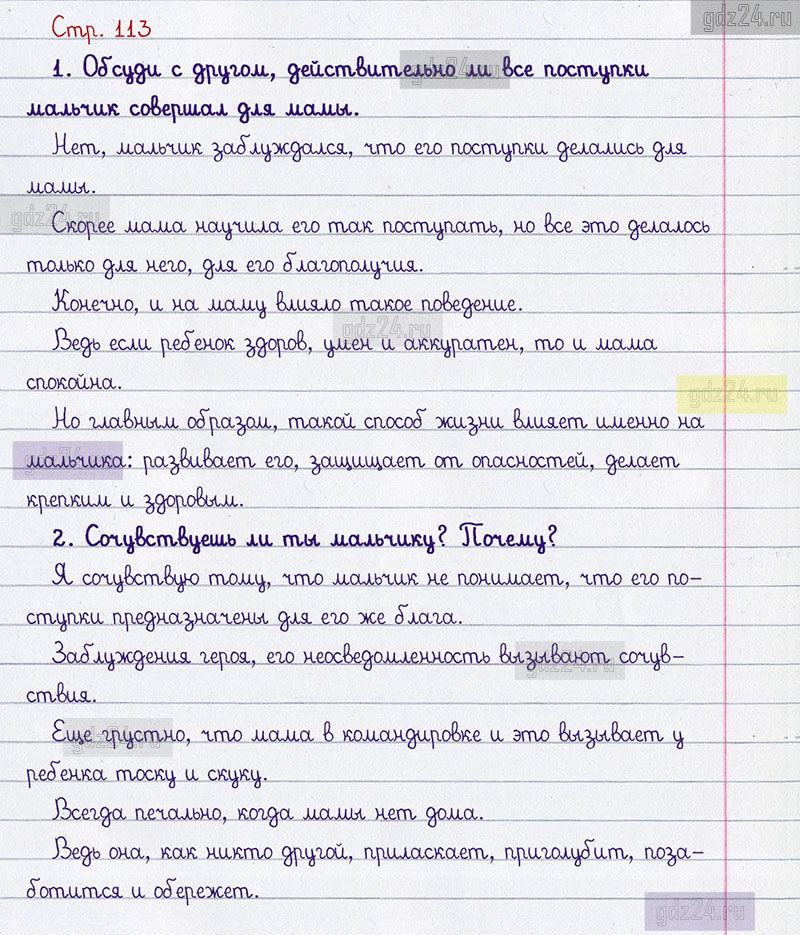 gdz24.ru
Стр. 113
1. Обсуди с другом, действительно ли все поступки
gdz24.ru
мальчик совершал для мамы.
Нет, мальчик заблуждался, что его поступки делались для
мамы.
gdz24.ru
Скорее мама научила его так поступать, но все это делалось
только для него, для его благополучия.
Конечно, и на маму влияло такое поведение.
gdz24.ru
Ведь если ребенок здоров, умен и аккуратен, то и мама
спокойна.
gdz24.ru
Но главным образом, такой способ жизни влияет именно на
мальчика: развивает его, защищает от опасностей, делает
крепким и здоровым.
2. Сочувствуешь ли ты мальчику? Почему?
Я сочувствую тому, что мальчик не понимает, что его по-
ступки предназначены для его же блага.
Заблуждения героя, его неосведомленность вызывают сочув-
gdz24.ru
ствия.
Еще грустно, что мама в командировке и это вызывает у
gdz24.ru
ребенка тоску и скуку.
Всегда печально, когда мамы нет дома.
Ведь она, как никто другой, приласкает, приголубит, поза-
ботится и обережет.
gdz24.ru